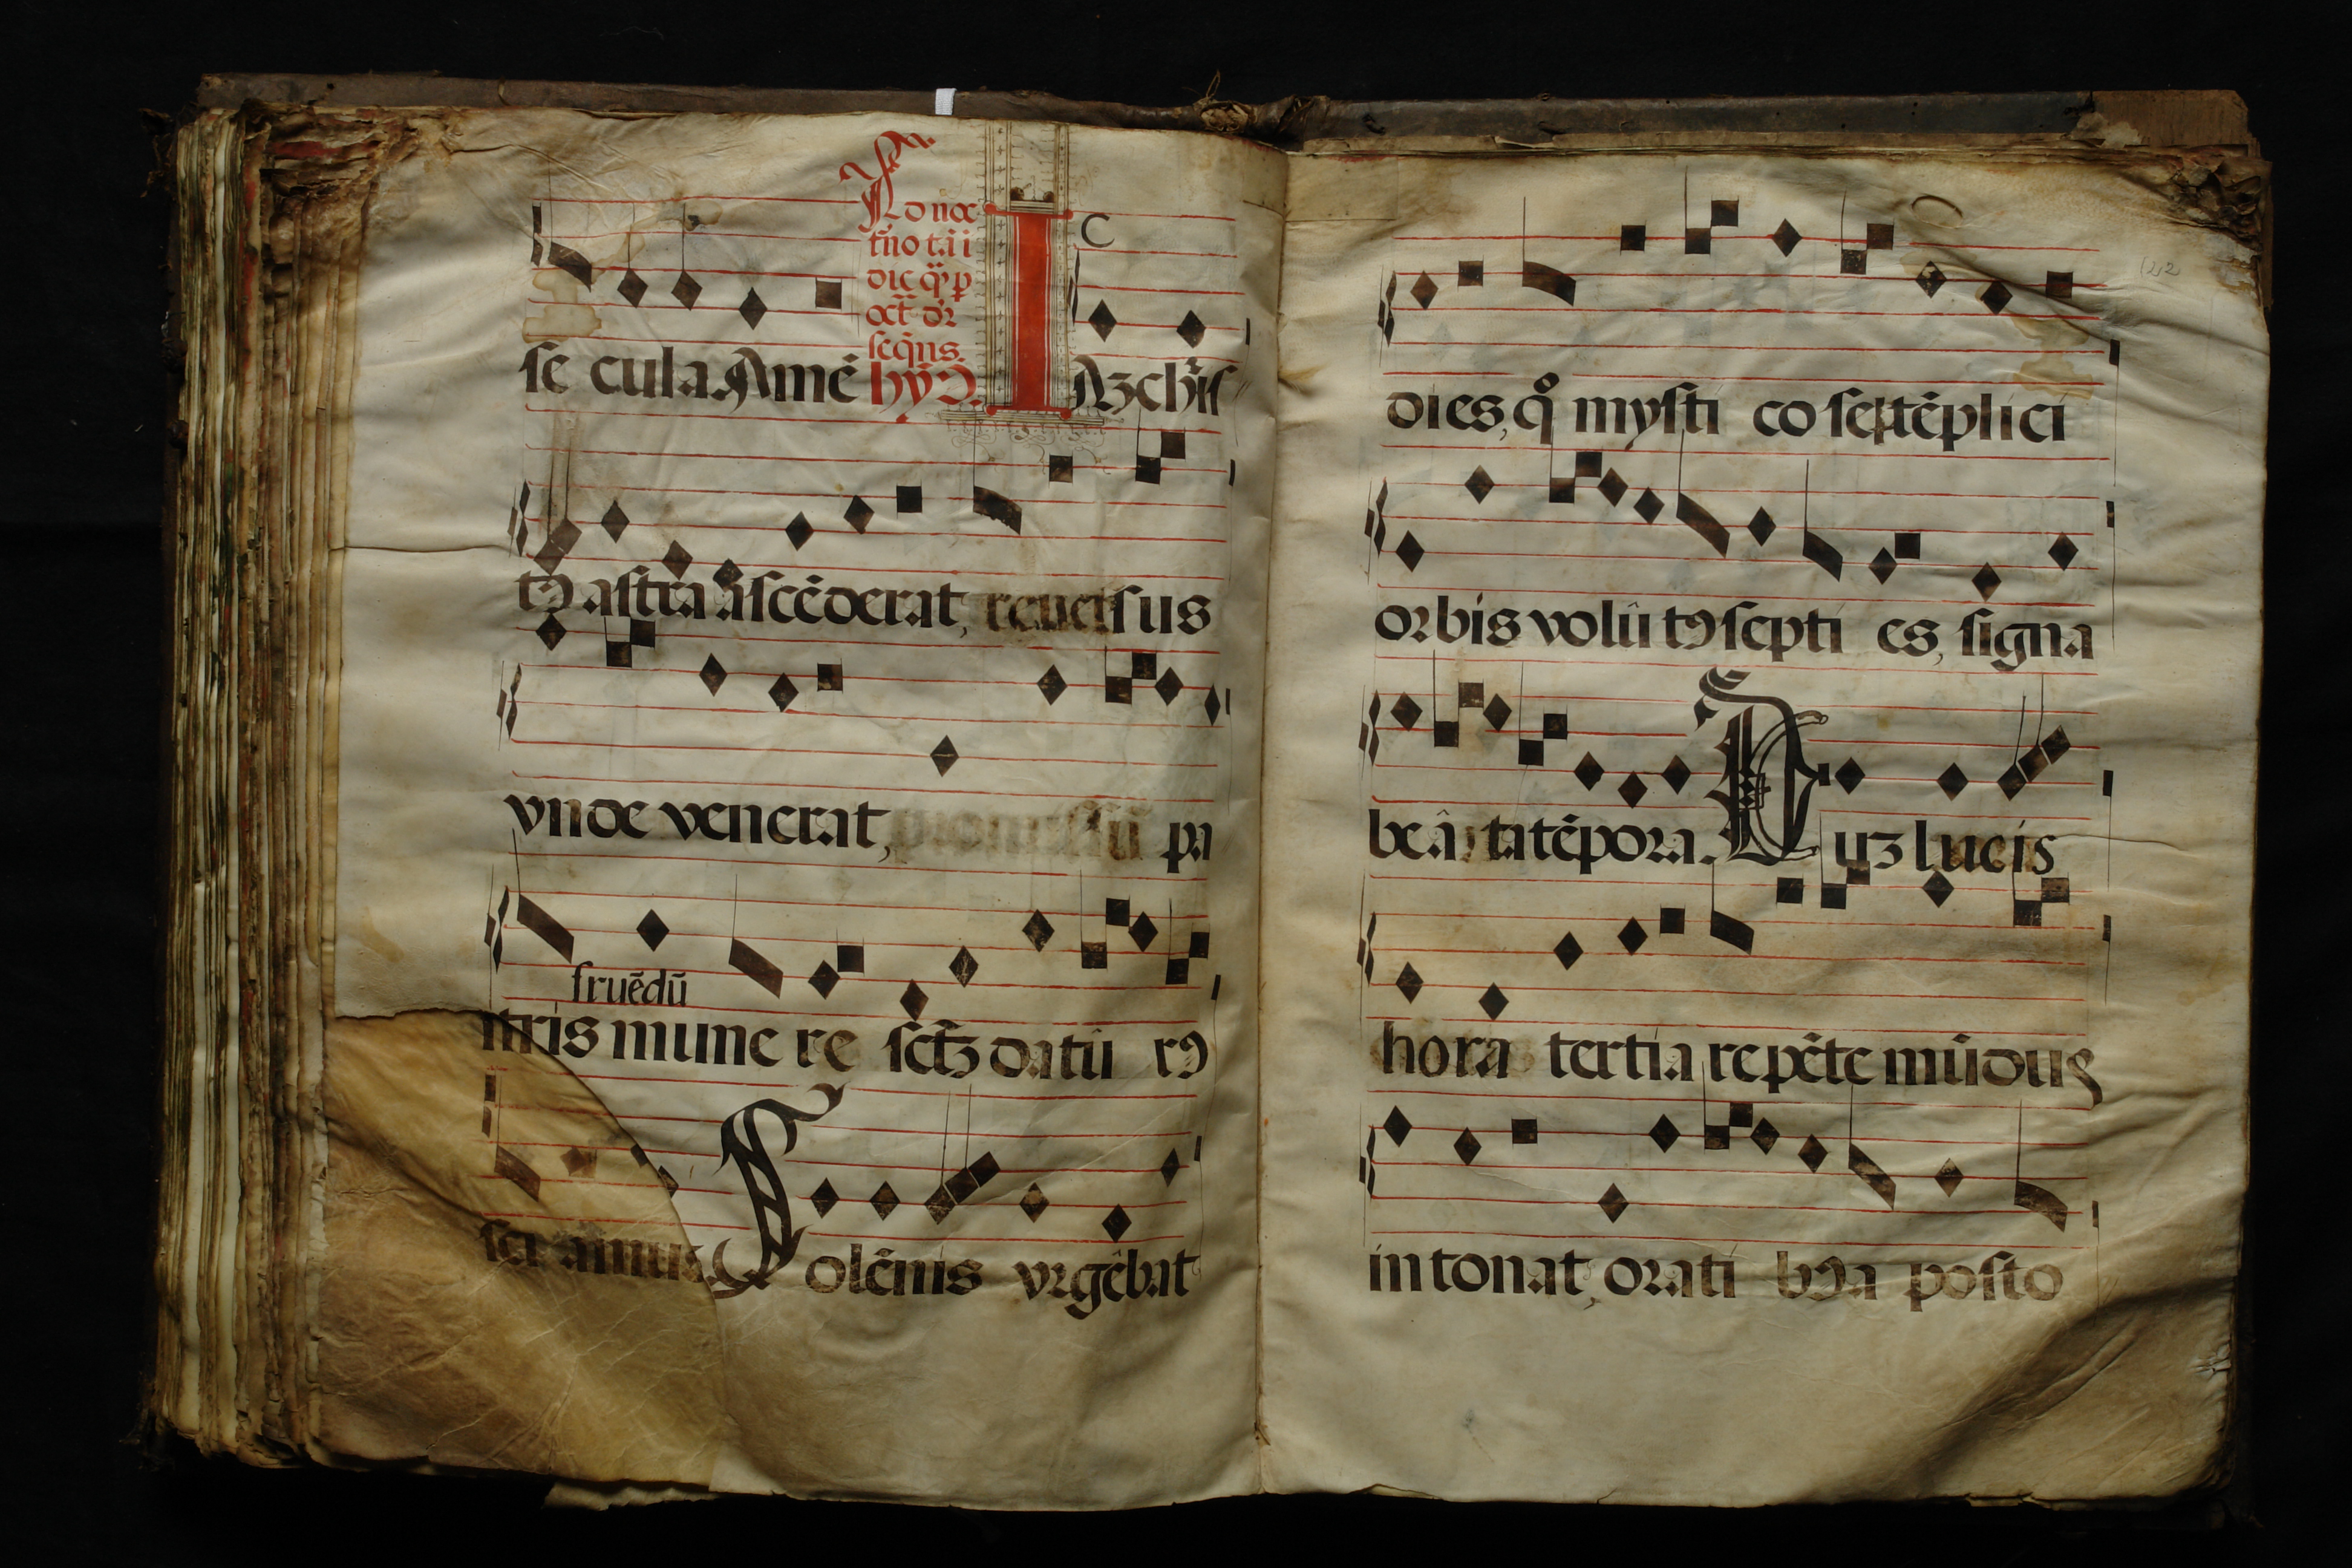 Ad noc
t̄no t.ii
die q̄ p
oct̄ dr̄
seq̄ns.
hȳꝰ.
C
se cula. Amē IAꝫ chr̄is
tꝰ astra āscēderat, reuersus
vnde venerat, promissū pa
fruēdū
tris mune re sctꝫ datū rꝰ
sci amus. Solēnis vrgēbat
122
dies, qͦ mysti co septēplici
orbis volū tꝰ septi es, signa
beâ ta tēpora. Duꝫ lucis
hora tertia repēte mūdus
intonat, orati bꝰ a posto